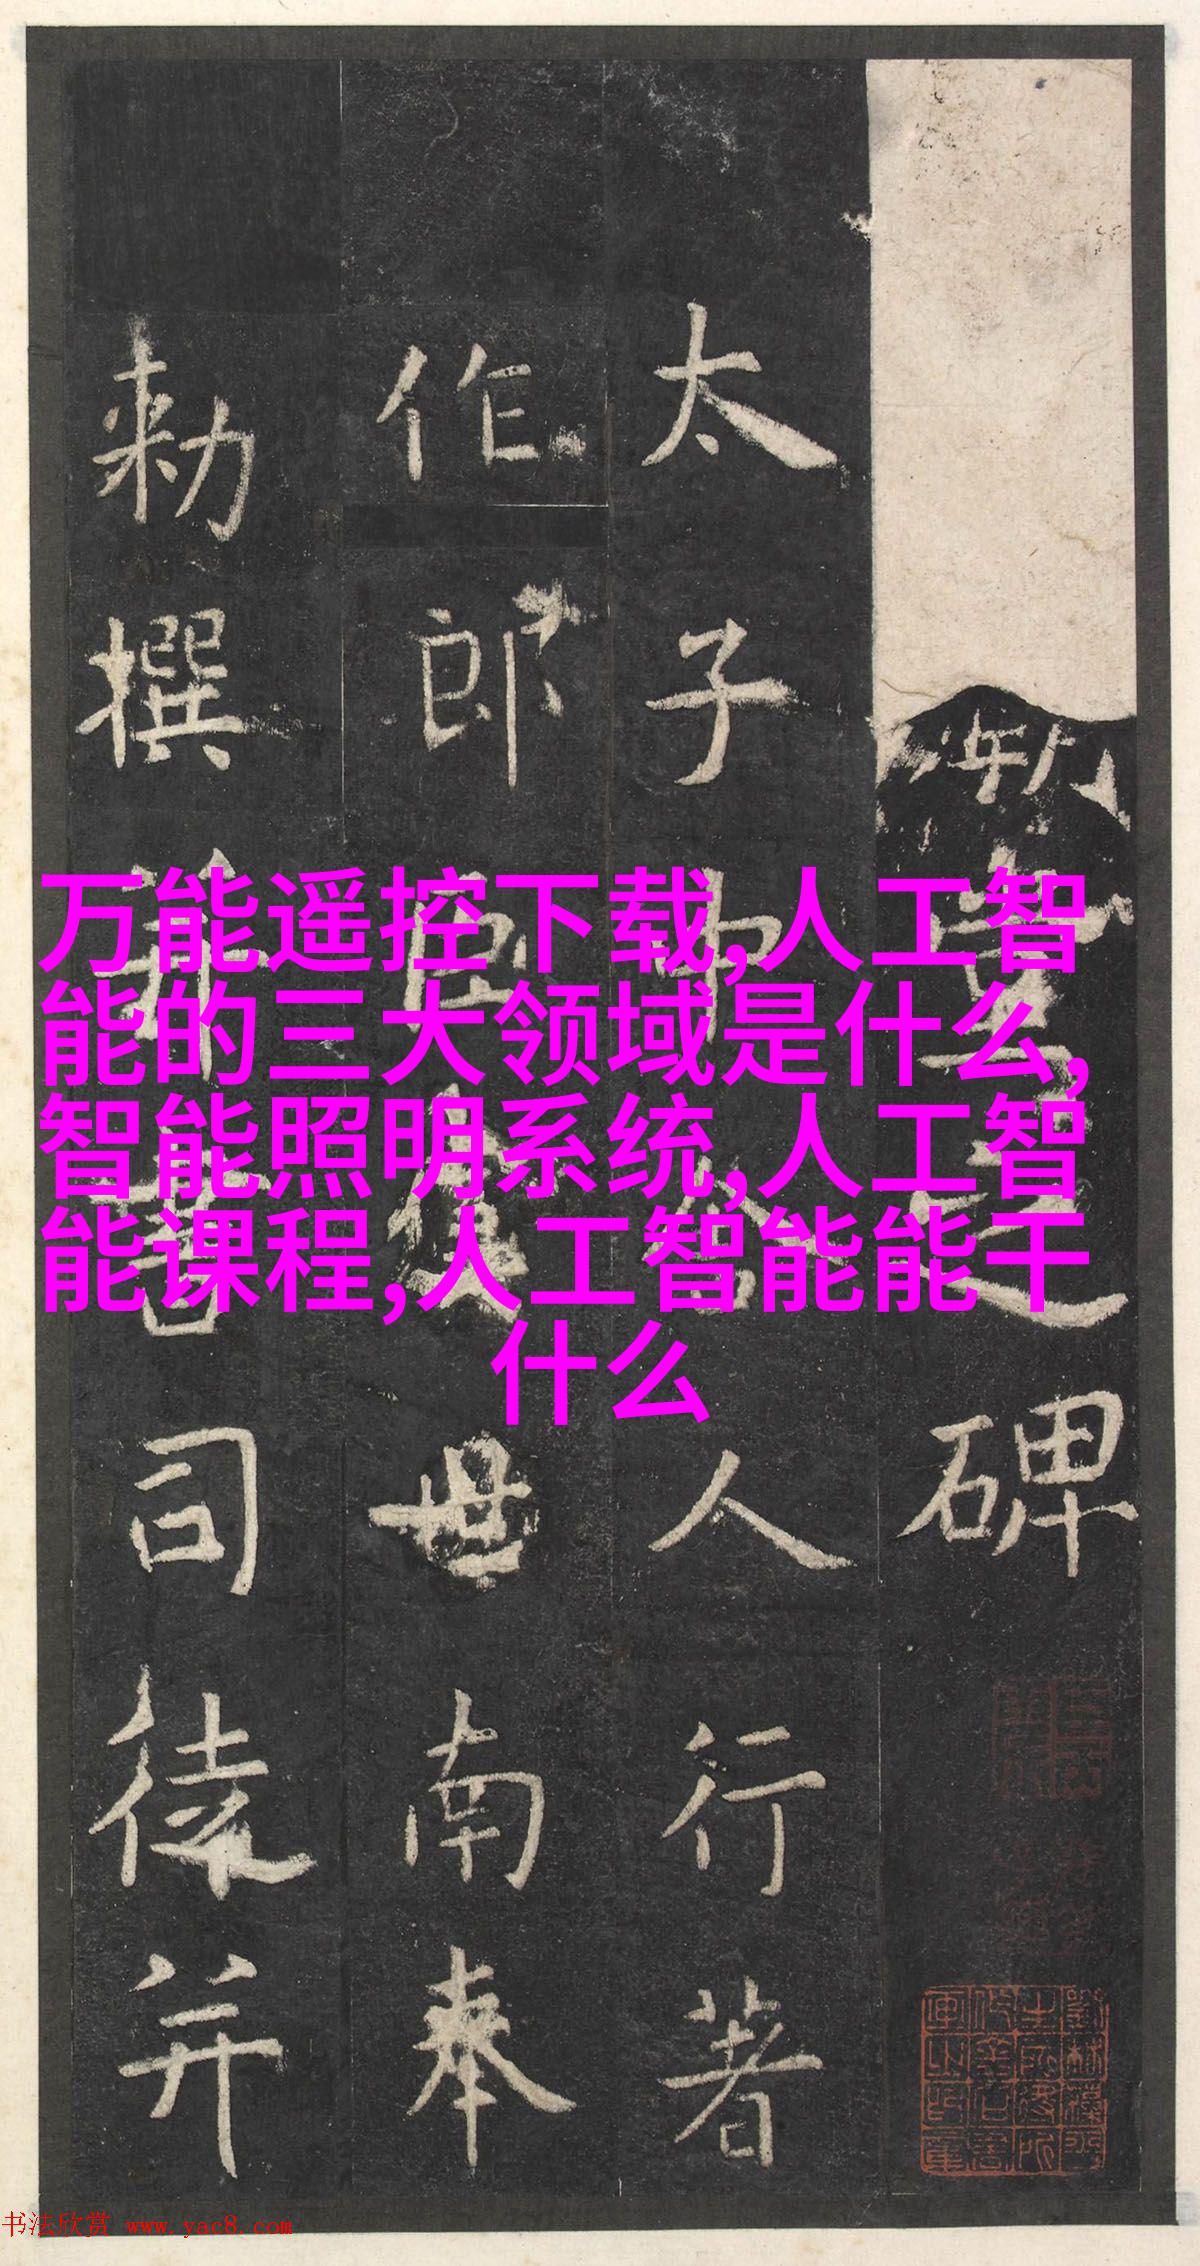 堂之碑
太子中舍人行著
作郎臣虞世南奉
勑撰并書司徒并
万能遥控下载,人工智
能的三大领域是什么,
智能照明系统,人工智
能课程,人工智能能干
什么
书法欣赏 www.yac8.com